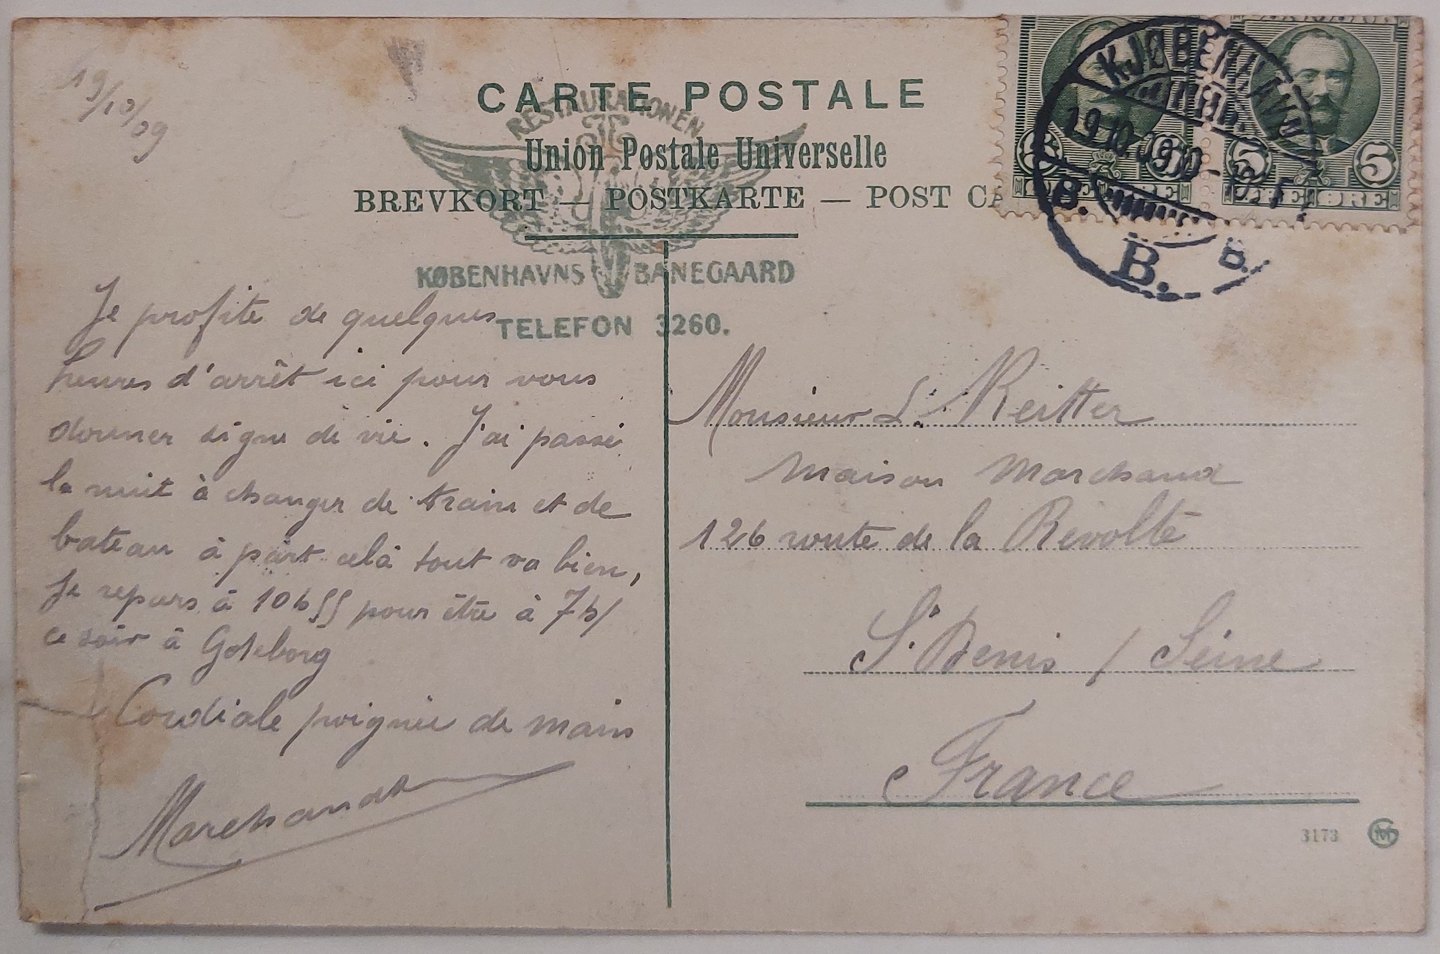 19/10/09
CARTE POSTALE
RESTAURATIONEN
Union Postale Universelle
BREVKORT — POSTKARTE — POST CA
KØBENHAVNS BANEGAARD
TELEFON 3260.
KJØBENHAVN
19.10.09
B. B.
B.
5
5
ØRE
Je profite de quelques
heures d'arrêt ici pour vous
donner signe de vie. J'ai passé
la nuit à changer de train et de
bateau à part celà tout va bien,
Je repars à 10h55 pour être à 7h/
ce soir à Goteborg
Cordiale poignée de main
Marchand
Monsieur L. Reitter
Maison Marchand
126 route de la Révolte
St Denis / Seine
France
3173